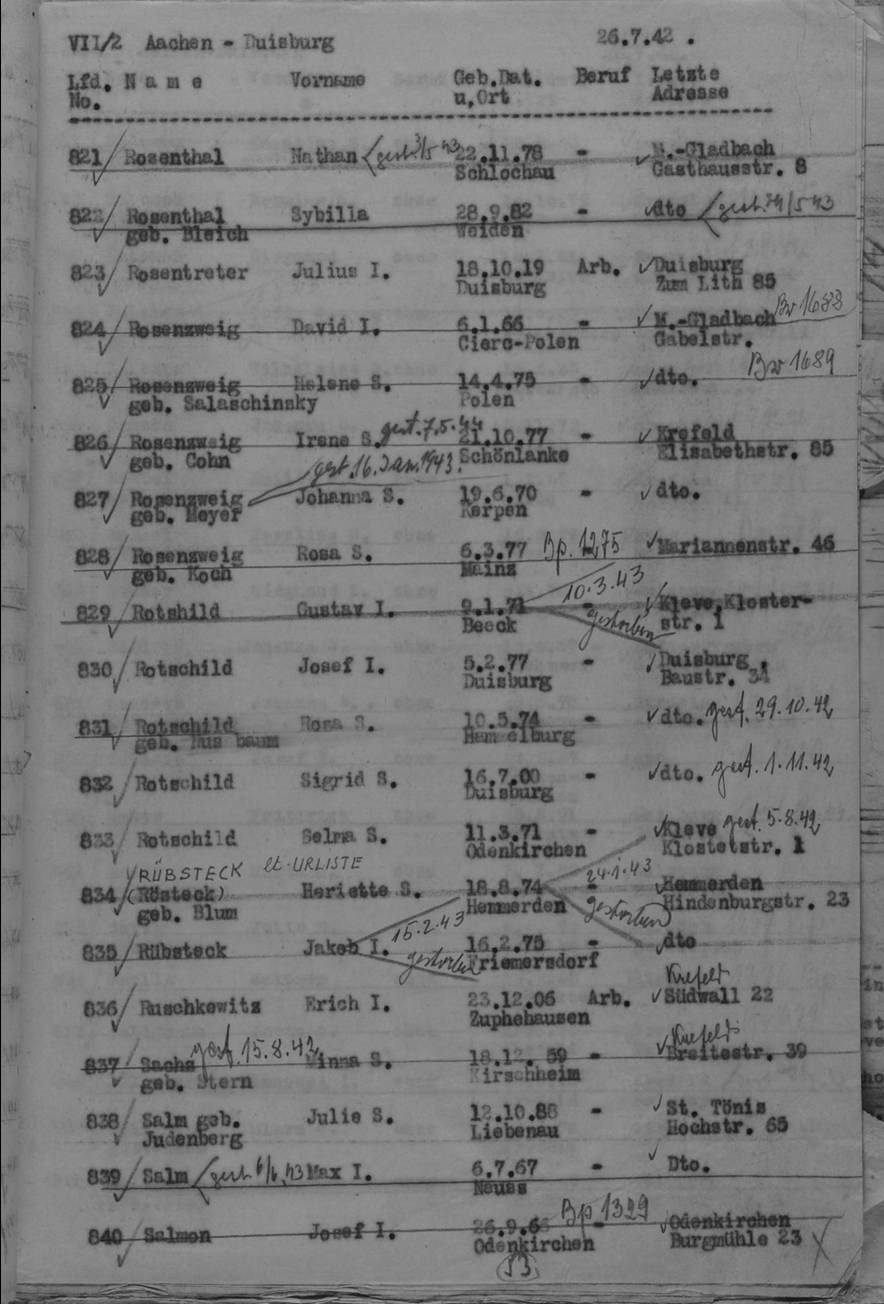 VII/2 Aachen - Duisburg 26.7.42 .
Lfd. N a m e Vorname Geb.Dat. Beruf Letzte
No. u.Ort Adresse
821 Rosenthal Nathan gest. 3/5 43 22.11.78 - M.-Gladbach
Schlochau Gasthausstr. 8
822 Rosenthal Sybilla 28.9.82 - dto gest. 24/5 43
geb. Bleich Weiden
823 Rosentreter Julius I. 18.10.19 Arb. Duisburg
Duisburg Zum Lith 85
824 Rosenzweig David I. 6.1.66 - M.-Gladbach Bv 1688
Cierc-Polen Gabelstr.
825 Rosenzweig Helene S. 14.4.75 - dto. Bv 1689
geb. Salaschinsky Polen
826 Rosenzweig Irene S. gest. 7.5.44 21.10.77 - Krefeld
geb. Cohn Schönlanke Elisabethstr. 85
gest. 16. Jan. 1943.
827 Rosenzweig Johanna S. 19.6.70 - dto.
geb. Meyer Kerpen
828 Rosenzweig Rosa S. 6.3.77 Bp. 1275 Mariannenstr. 46
geb. Koch Mainz
10.3.43
829 Rotshild Gustav I. 9.1.71 - Kleve,Kloster-
Beeck gestorben str. 1
830 Rotschild Josef I. 5.2.77 - Duisburg,
Duisburg Baustr. 34
831 Rotschild Rosa S. 10.5.74 - dto. gest. 29.10.42
geb. Nus baum Ham elburg
832 Rotschild Sigrid S. 16.7.00 - dto. gest. 1.11.42
Duisburg
833 Rotschild Selma S. 11.3.71 - Kleve gest. 5.8.42
Odenkirchen Klostetstr. 1
RÜBSTECK lt. URLISTE 24.1.43
834 (Rösteck) Heriette S. 18.8.74 - Hemmerden
geb. Blum Hemmerden gestorben Hindenburgstr. 23
15.2.43
835 Rübsteck Jakob I. 16.2.75 - dto
gestorben Friemersdorf
Krefeld
836 Ruschkewitz Erich I. 23.12.06 Arb. Südwall 22
Zuphehausen
Krefeld
837 Sachs gest. 15.8.42 Minna S. 18.12. 59 - Breitestr. 39
geb. Stern Kirschheim
838 Salm geb. Julie S. 12.10.88 - St. Tönis
Judenberg Liebenau Hochstr. 65
839 Salm gest. 6/6.43 Max I. 6.7.67 - Dto.
Neuss
840 Salmon Josef I. 26.9.66 Bp 1329 - Odenkirchen
Odenkirchen Burgmühle 23 X
53